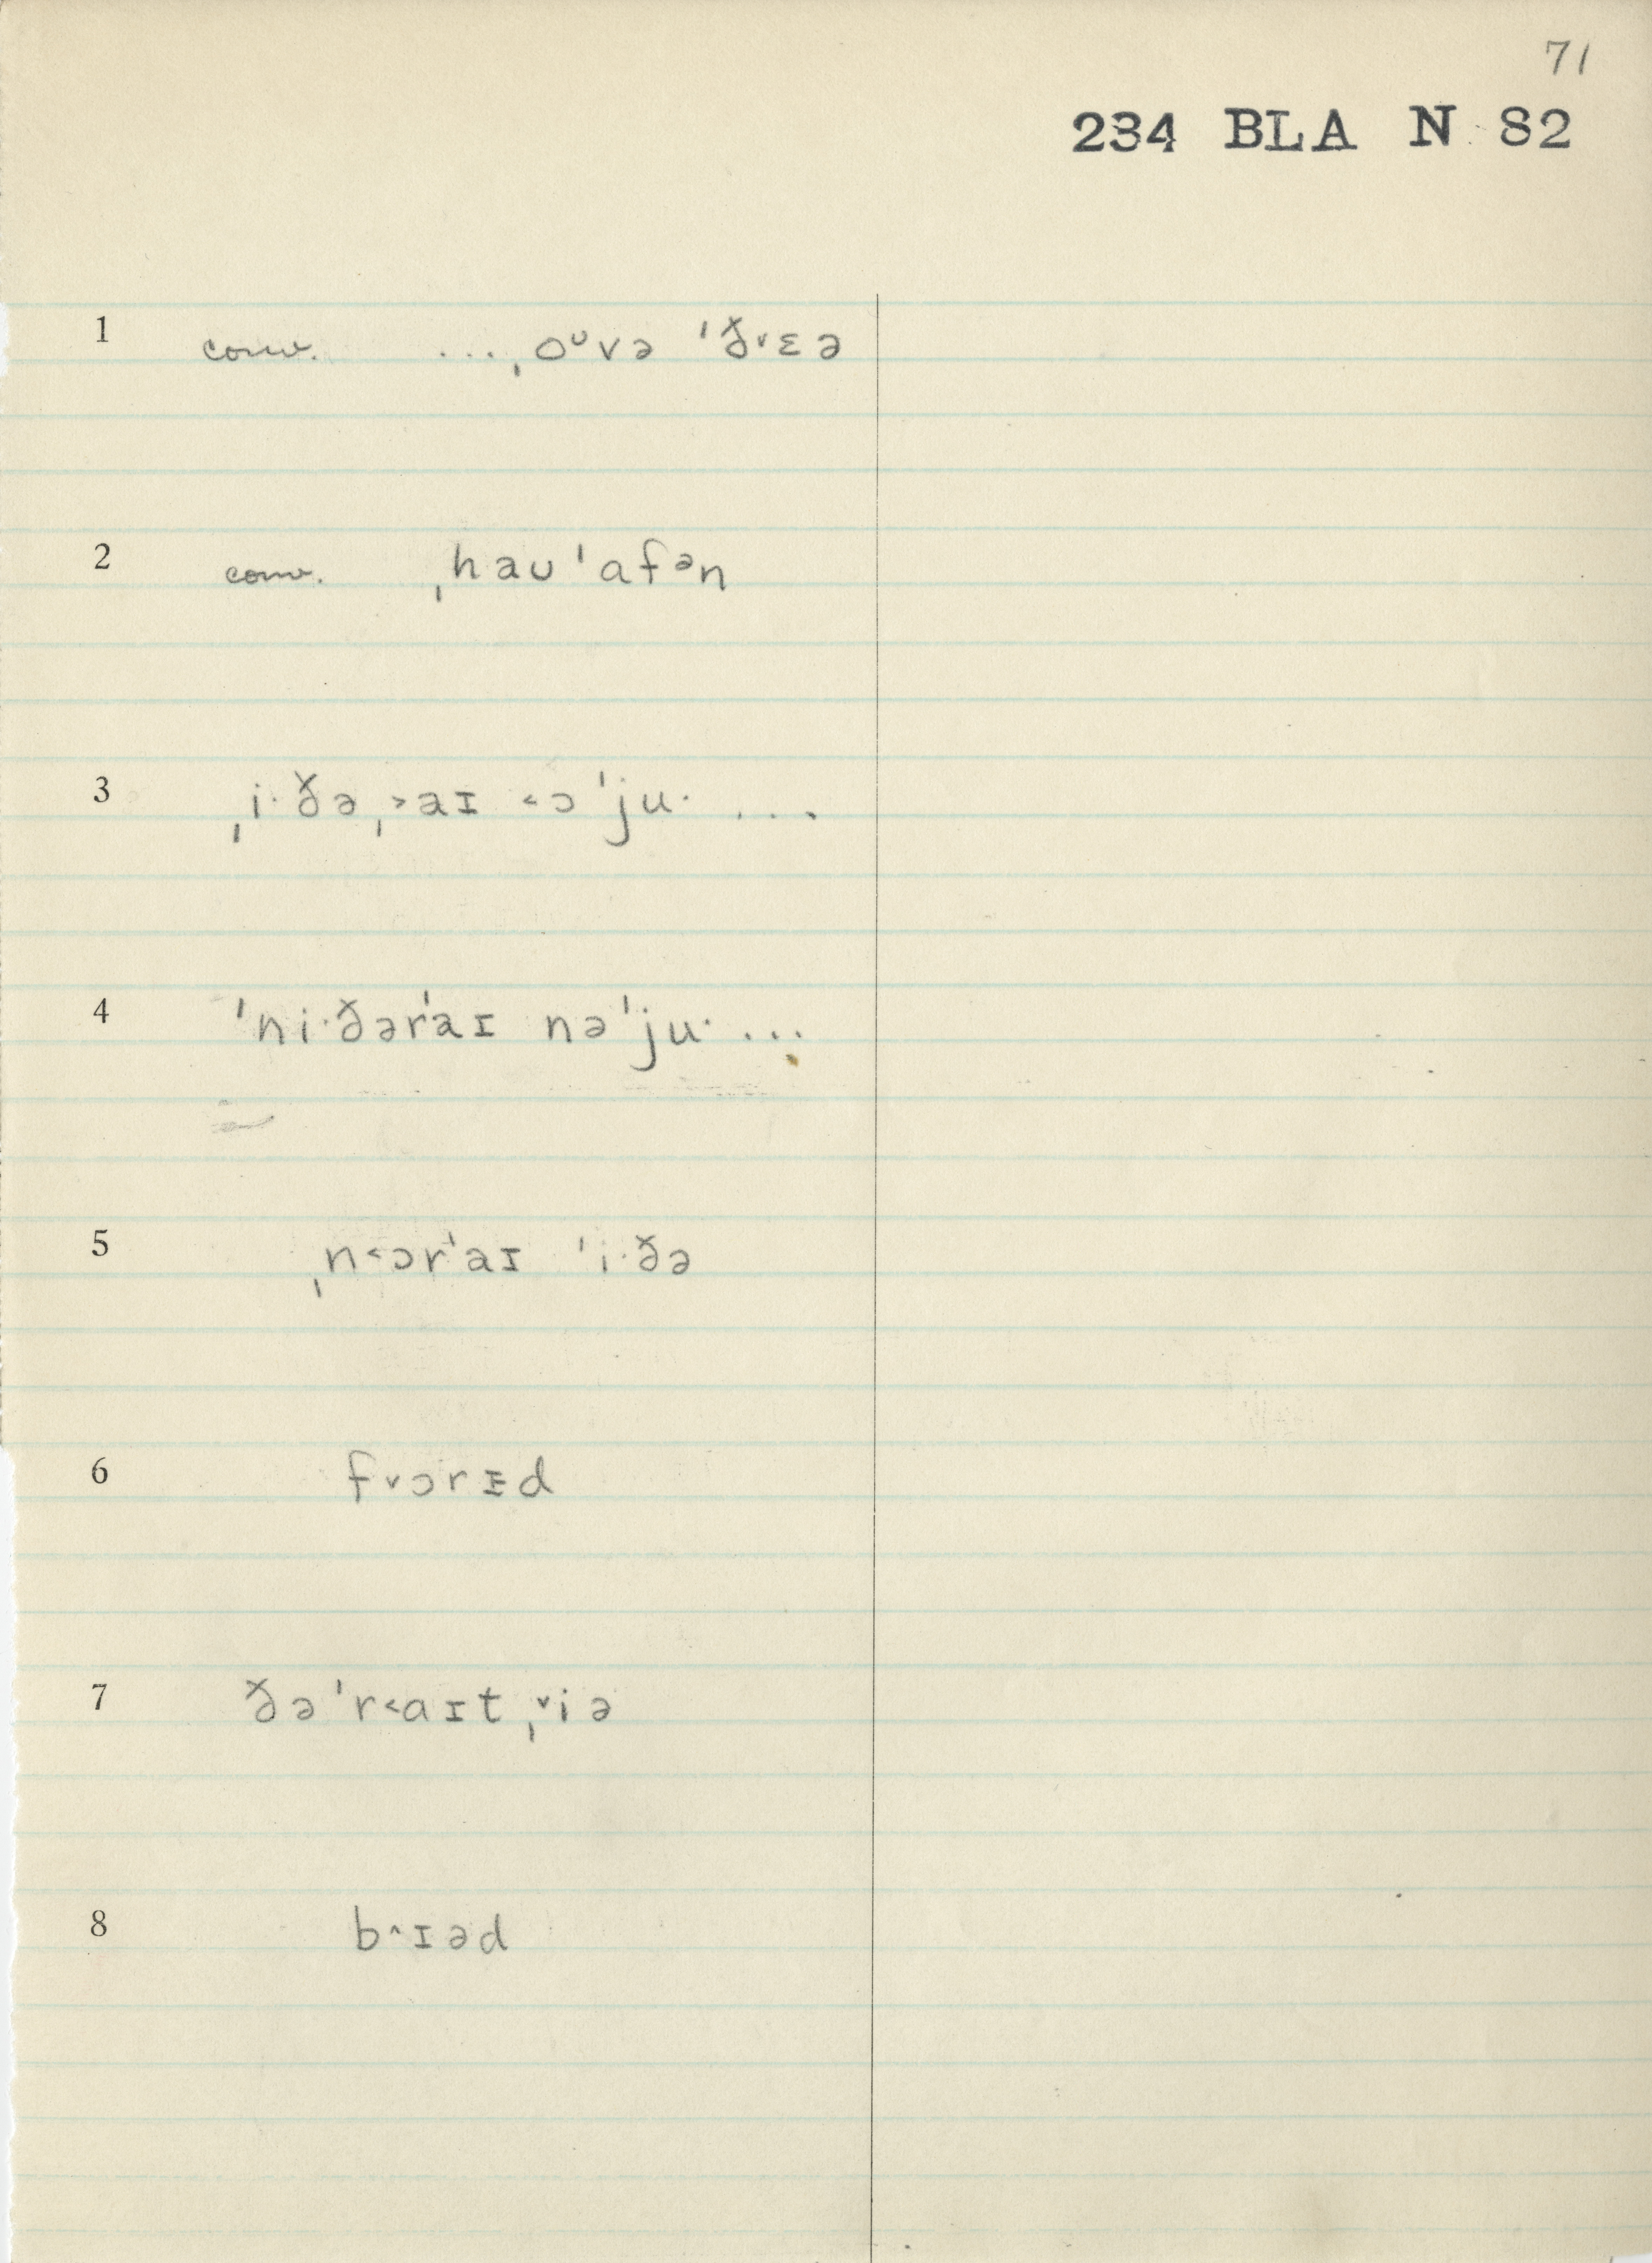 71
234 BLA N 82
1 conv. ...ˌoᶷvə ˈð˅ɛə
2 conv. ˌhaʊˈafᵊn
3 ˌi·ðəˌ˃aɪ ˂ɔˈju· ...
4 ˈni·ðərˈaɪ nəˈju· ...
5 ˌn˂ɔrˈaɪ ˈi·ðə
6 f˅ɔrɪ̵d
7 ðəˈr˂aɪtˌ˅iə
8 b˄ɪəd